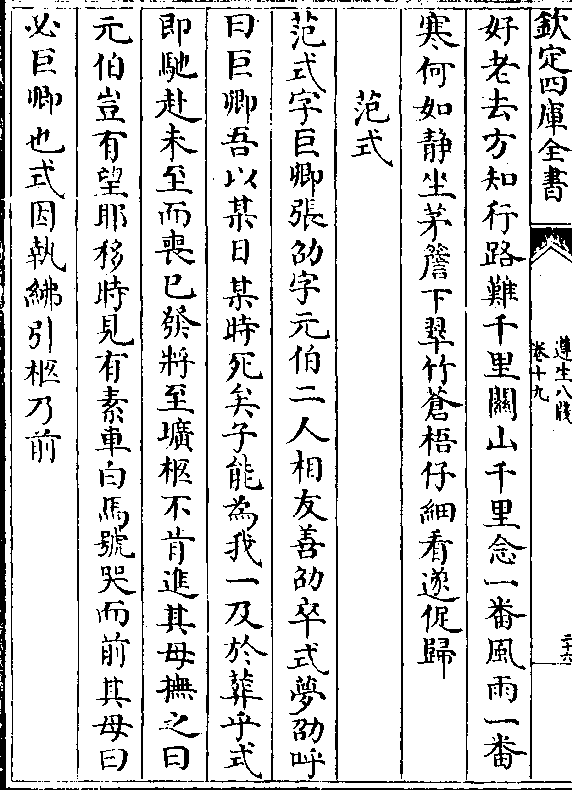 欽定四庫全書
遵生八牋
卷十九
二十六
好老去方知行路難千里關山千里念一番風雨一番
寒何如静坐茅簷下翠竹蒼梧仔細看遂促歸
范式
范式字巨卿張劭字元伯二人相友善劭卒式夢劭呼
曰巨卿吾以某日某時死矣子能為我一及於葬乎式
即馳赴未至而喪已發將至壙柩不肯進其母撫之曰
元伯豈有望耶移時見有素車白馬號哭而前其母曰
必巨卿也式因執紼引柩乃前